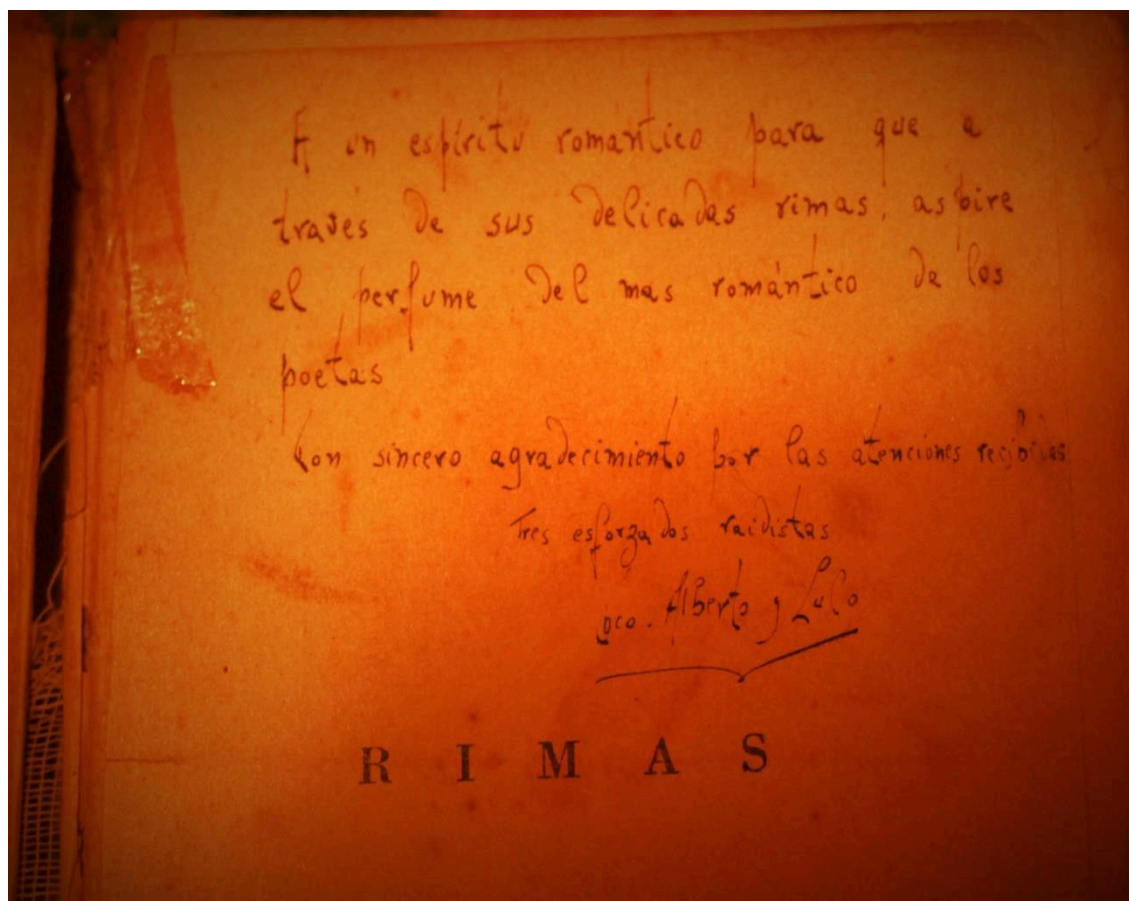 A un espíritu romantico para que a
traves de sus delicadas rimas, aspire
el perfume del mas romántico de los
poetas
Con sincero agradecimiento por las atenciones recibidas
Tres esforzados raidistas
Alberto y Lulo
RIMAS